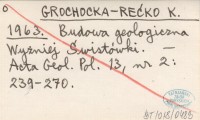 GROCHOCKA-REĆKO K.
1963. Budowa geologiczna
Wyżniej Świstówki. —
Acta Geol. Pol. 13, nr 2:
239-270.